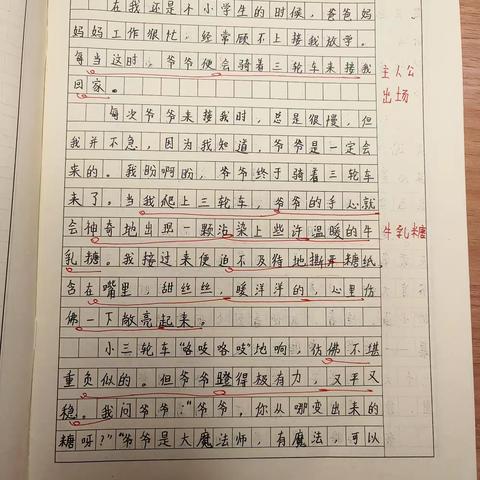 在我还是个小学生的时候，爸爸妈
妈妈工作很忙，经常顾不上接我放学。
每当这时，爷爷便会骑着三轮车来接我
回家。
主人公
出场
每次爷爷来接我时，总是很慢，但
我并不急，因为我知道，爷爷是一定会
来的。我盼啊盼，爷爷终于骑着三轮车
来了。当我爬上三轮车，爷爷的手心就
会神奇地出现一颗沾染上些许温暖的牛
牛乳糖
乳糖。我接过来便迫不及待地撕开糖纸，
含在嘴里，甜丝丝，暖洋洋的，心里仿
佛一下敞亮起来。
小三轮车“咯吱咯吱”地响，仿佛不堪
重负似的。但爷爷蹬得极有力，又平又
稳。我问爷爷：“爷爷，你从哪变出来的
糖呀？”“爷爷是大魔法师，有魔法，可以